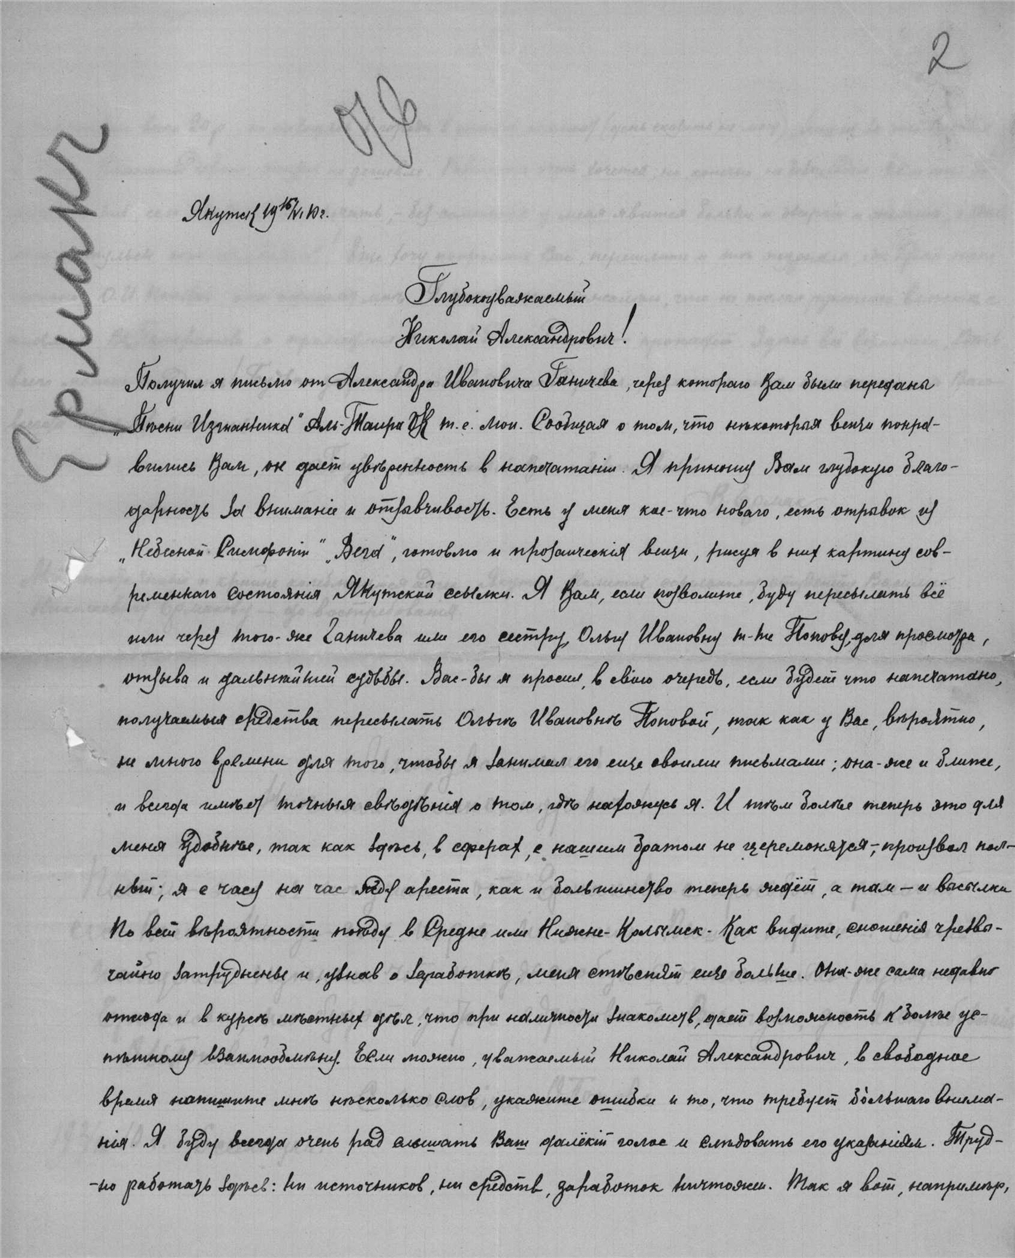 2
Ермакъ
Якутск 19 15/VI 10 г.
Глубокоуважаемый
Николай Александрович!
Получил я письмо от Александра Ивановича Ганичева, через котораго Вам были переданы
„Пѣсни Изгнанника" Аль-Таира т. е. мои. Сообщая о том, что нѣкоторыя вещи понра-
вились Вам, он дает увѣренность в напечатаніи. Я приношу Вам глубокую благо-
дарность за вниманіе и отзывчивость. Есть у меня кое-что новаго, есть отрывок из
„Небесной Симфоніи" „Вега", готовлю и прозаическія вещи, рисуя в них картину сов-
ременнаго состоянія Якутской ссылки. Я Вам, если позволите, буду пересылать всё
или через того-же Ганичева или его сестру, Ольгу Ивановну m-me Попову, для просмотра,
отзыва и дальнѣйшей судьбы. Вас-бы я просил, в свою очередь, если будет что напечатано,
получаемыя средства пересылать Ольгѣ Ивановнѣ Поповой, так как у Вас, вѣроятно,
не много времени для того, чтобы я занимал его еще своими письмами; она-же и ближе,
и всегда имѣет точныя свѣдѣнія о том, гдѣ нахожусь я. И тѣм болѣе теперь это для
меня удобнѣе, так как здѣсь, в сферах, с нашим братом не церемонятся, произвол пол-
ный; я с часу на час жду ареста, как и большинство теперь ждёт, а там — и высылки
По всей вѣроятности поѣду в Средне или Нижне-Колымск. Как видите, сношенія чрезвы-
чайно затруднены и, узнав о заработкѣ, меня стѣснят еще больше. Она-же сама недавно
отсюда и в курсѣ мѣстных дѣл, что при наличности знакомств, дает возможность к болѣе ус-
пѣшному взаимообмѣну. Если можно, уважаемый Николай Александрович, в свободное
время напишите мнѣ нѣсколько слов, укажите ошибки и то, что требует бо́льшаго внима-
нія. Я буду всегда очень рад слышать Ваш далёкій голос и слѣдовать его указаніям. Труд-
-но работать здѣсь: ни источников, ни средств, заработок ничтожен. Так я вот, напримѣр,